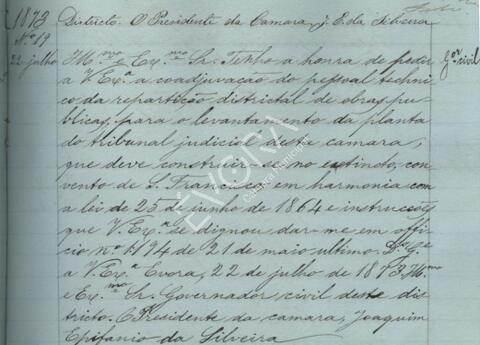 1873 Districto. O Presidente da Camara, J. E. da Silveira
Nº 19
22 julho Ill.mo e Ex.mo Sr. Tenho a honra de pedir Gor civil
a V. Ex.ª a coadjuvação do pessoal techni-
co da repartição districtal de obras pu-
blicas, para o levantamento da planta
do tribunal judicial desta camara,
que deve construir-se no extincto con-
vento de S. Francisco, em harmonia com
a lei de 25 de junho de 1864 e instrucções
que V. Ex.ª se dignou dar-me em offi-
cio nº 194 de 21 de maio ultimo. D.s G.e
a V. Ex.ª Evora, 22 de julho de 1873. Ill.mo
e Ex.mo Sr. Governador civil deste dis-
tricto. O Presidente da camara, Joaquim
Epifanio da Silveira
EVORA
Câmara Municipal